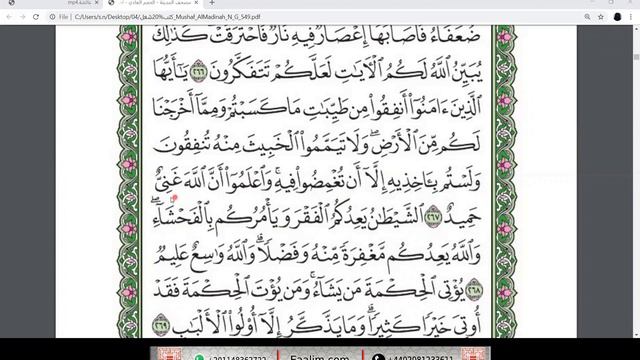 مصحف المدينة - الحجم العادي
File | C:/Users/s.n/Desktop/04/كتب%20شغل_Mushaf_AlMadinah_N_G_549.pdf
ضُعَفَاءُ فَأَصَابَهَا إِعْصَارٌ فِيهِ نَارٌ فَاحْتَرَقَتْ كَذَٰلِكَ
يُبَيِّنُ اللَّهُ لَكُمُ الْآيَاتِ لَعَلَّكُمْ تَتَفَكَّرُونَ ٢٦٦ يَٰٓأَيُّهَا
الَّذِينَ ءَامَنُوٓا۟ أَنفِقُوا۟ مِن طَيِّبَٰتِ مَا كَسَبْتُمْ وَمِمَّآ أَخْرَجْنَا
لَكُم مِّنَ الْأَرْضِ ۖ وَلَا تَيَمَّمُوا۟ الْخَبِيثَ مِنْهُ تُنفِقُونَ
وَلَسْتُم بِـَٔاخِذِيهِ إِلَّآ أَن تُغْمِضُوا۟ فِيهِ ۚ وَاعْلَمُوٓا۟ أَنَّ اللَّهَ غَنِيٌّ
حَمِيدٌ ٢٦٧ الشَّيْطَٰنُ يَعِدُكُمُ الْفَقْرَ وَيَأْمُرُكُم بِالْفَحْشَآءِ ۖ
وَاللَّهُ يَعِدُكُم مَّغْفِرَةً مِّنْهُ وَفَضْلًا ۗ وَاللَّهُ وَٰسِعٌ عَلِيمٌ
٢٦٨ يُؤْتِي الْحِكْمَةَ مَن يَشَآءُ ۚ وَمَن يُؤْتَ الْحِكْمَةَ فَقَدْ
أُوتِيَ خَيْرًا كَثِيرًا ۗ وَمَا يَذَّكَّرُ إِلَّآ أُو۟لُوا۟ الْأَلْبَٰبِ ٢٦٩
+201148362722 Eaalim.com +4402081233611